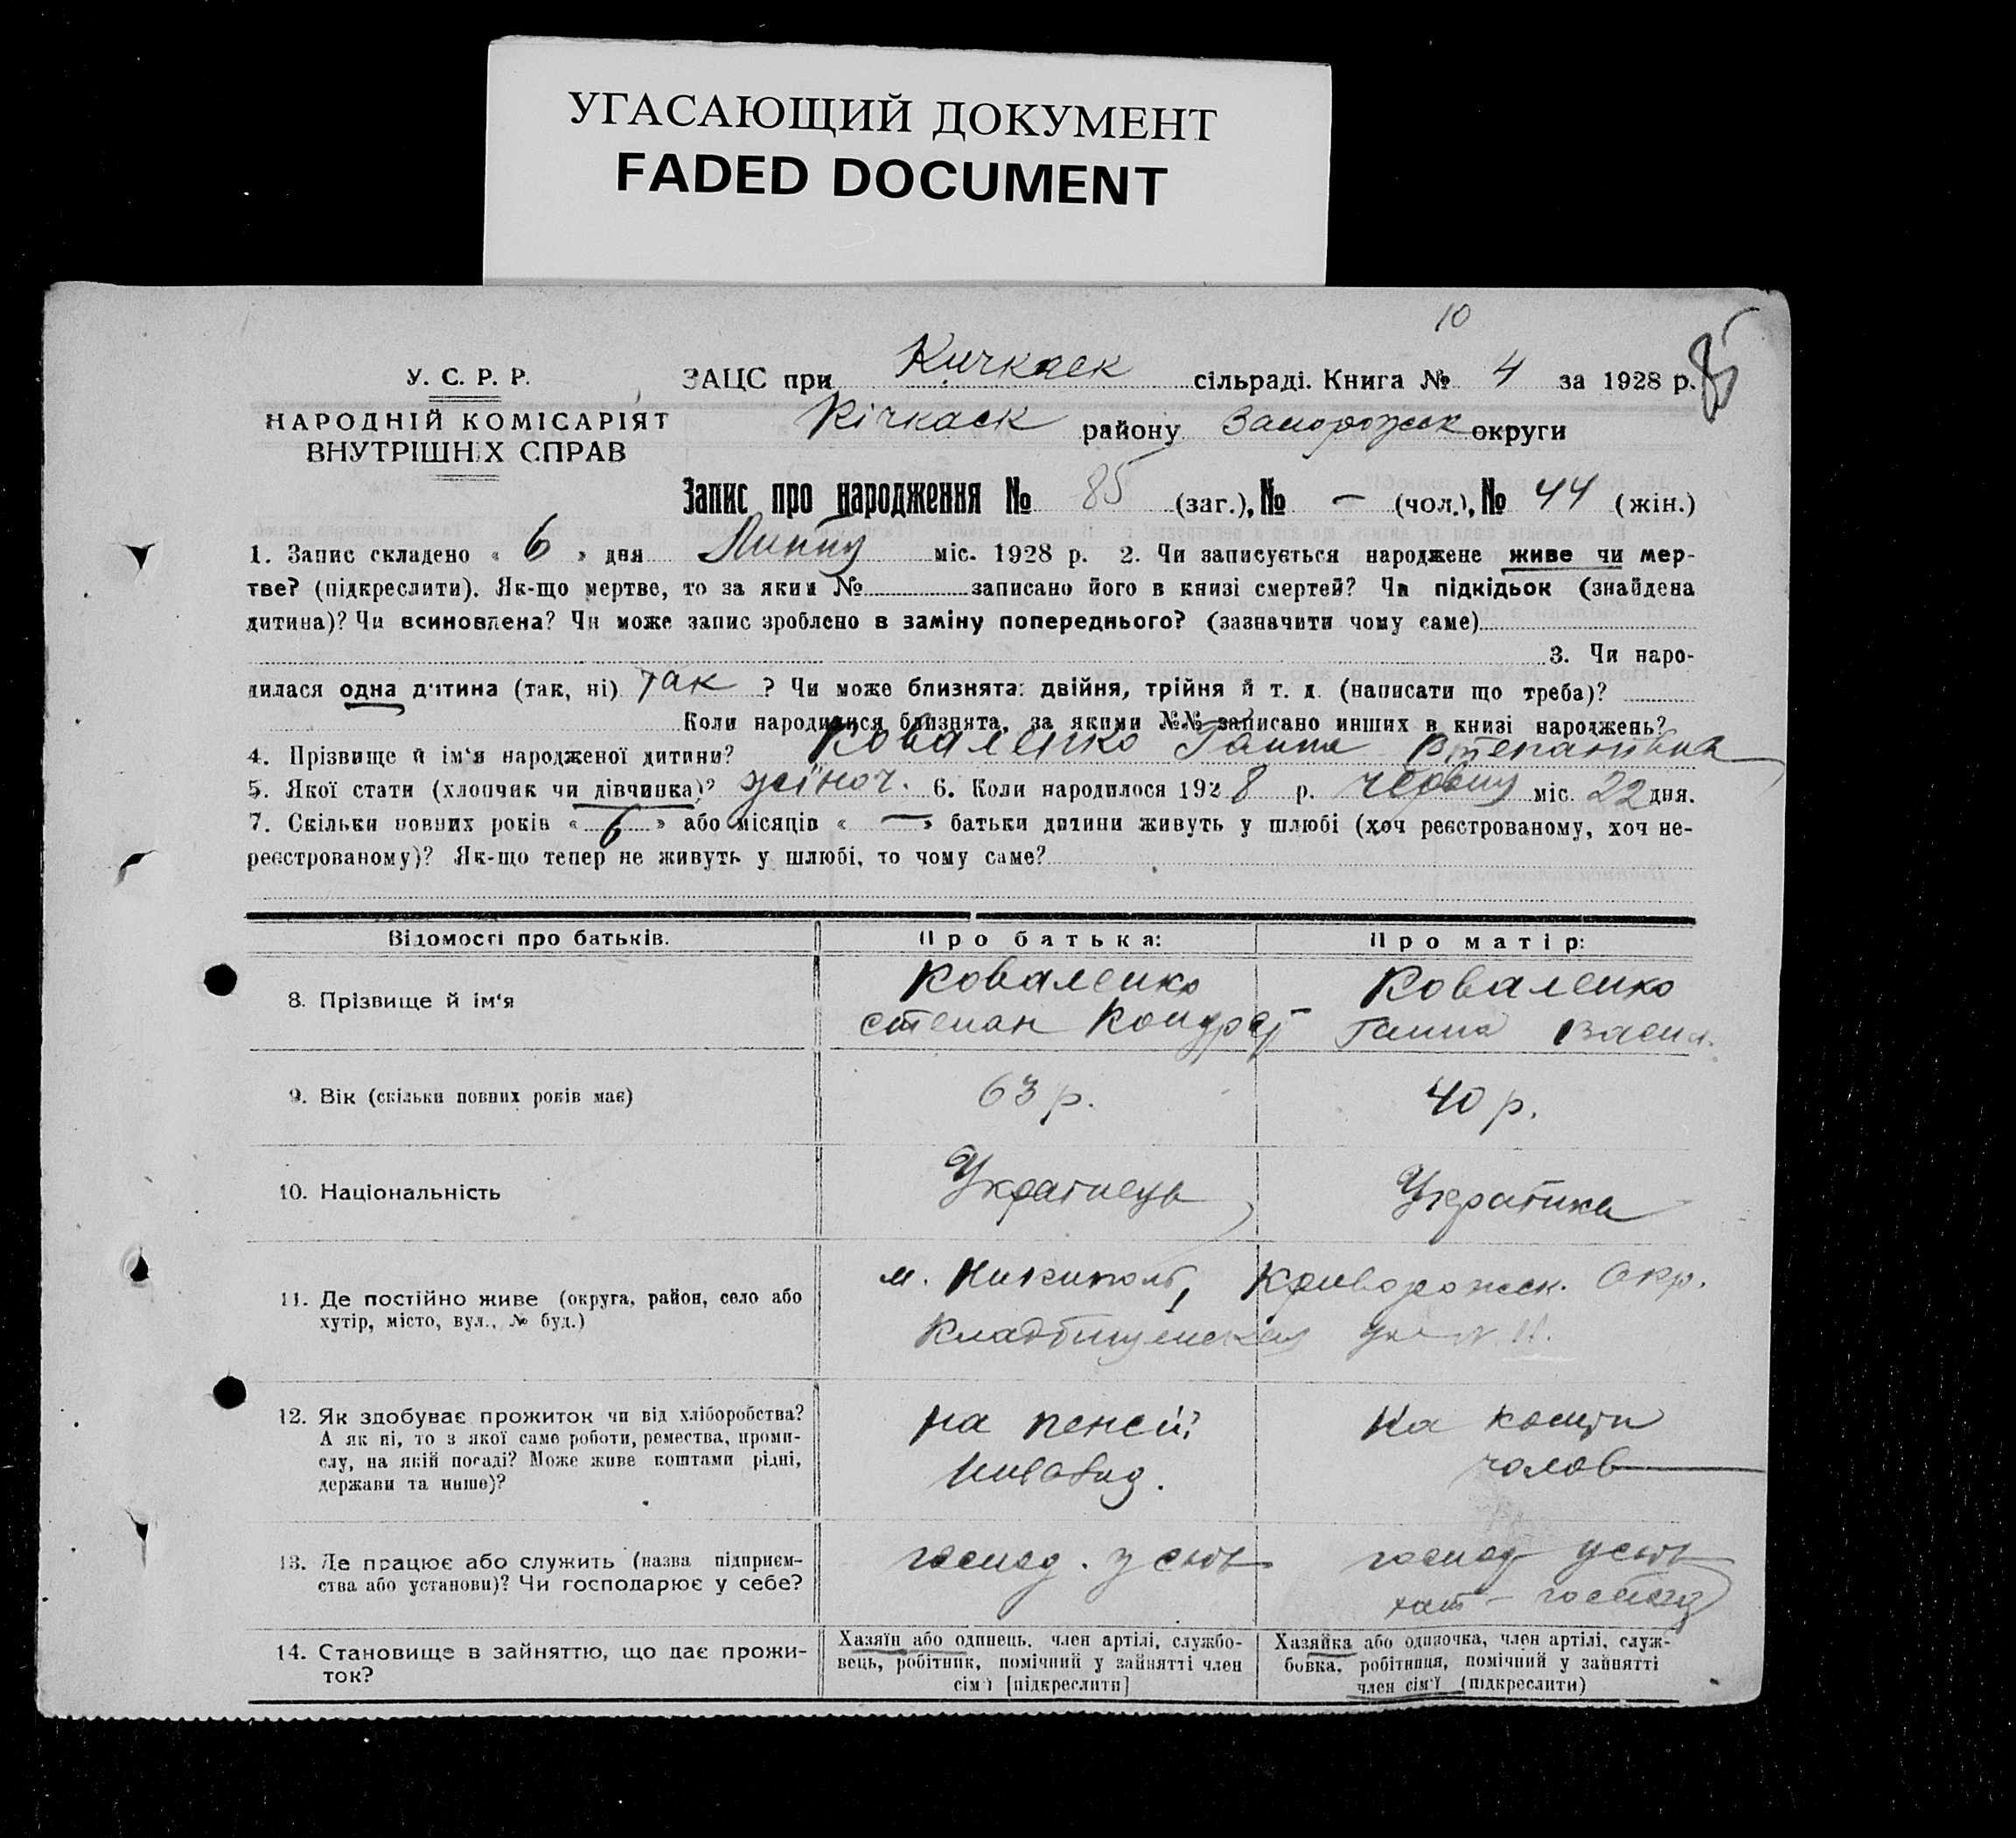 УГАСАЮЩИЙ ДОКУМЕНТ
FADED DOCUMENT
10
85
У. С. Р. Р.
НАРОДНІЙ КОМІСАРІЯТ
ВНУТРІШНІХ СПРАВ
ЗАЦС при Кичкаск сільраді. Книга № 4 за 1928 р.
Кічкаск району Запорожск округи
Запис про народження № 85 (заг.), № — (чол.), № 44 (жін.)
1. Запис складено « 6 » дня Липпу міс. 1928 р. 2. Чи записується народжене живе чи мер-
тве? (підкреслити). Як-що мертве, то за яким № записано його в книзі смертей? Чи підкідьок (знайдена
дитина)? Чи всиновлена? Чи може запис зроблено в заміну попереднього? (зазначити чому саме)
3. Чи наро-
дилася одна дитина (так, ні) так ? Чи може близнята: двійня, трійня й т. д. (написати що треба)?
Коли народилися близнята, за якими №№ записано инших в книзі народжень?
4. Прізвище й ім'я народженої дитини? Коваленко Ганна Степанівна
5. Якої стати (хлопчик чи дівчинка)? жіноч. 6. Коли народилося 1928 р. червпу міс. 22 дня.
7. Скільки повних років « 6 » або місяців « — » батьки дитини живуть у шлюбі (хоч реєстрованому, хоч не-
реєстрованому)? Як-що тепер не живуть у шлюбі, то чому саме?
Відомості про батьків.
Про батька:
Про матір:
8. Прізвище й ім'я
Коваленко
Степан Кондрат
Коваленко
Ганна Васил.
9. Вік (скільки повних років має)
63 р.
40 р.
10. Національність
Українець
Українка
11. Де постійно живе (округа, район, село або
хутір, місто, вул., № буд.)
м. Никиполь, Криворожск. Окр.
Кладбищенская
12. Як здобуває прожиток чи від хліборобства?
А як ні, то з якої саме роботи, ремества, проми-
слу, на якій посаді? Може живе коштами рідні,
держави та инше)?
на пенсії
инвалид.
на кошти
чолов
13. Де працює або служить (назва підприєм-
ства або установи)? Чи господарює у себе?
господ. у себе
господ у себе
хат - господ
14. Становище в зайняттю, що дає прожи-
ток?
Хазяїн або одинець, член артілі, службо-
вець, робітник, помічний у зайнятті член
сім'ї [підкреслити]
Хазяйка або одиночка, член артілі, служ-
бовка, робітниця, помічний у зайнятті
член сім'ї (підкреслити)